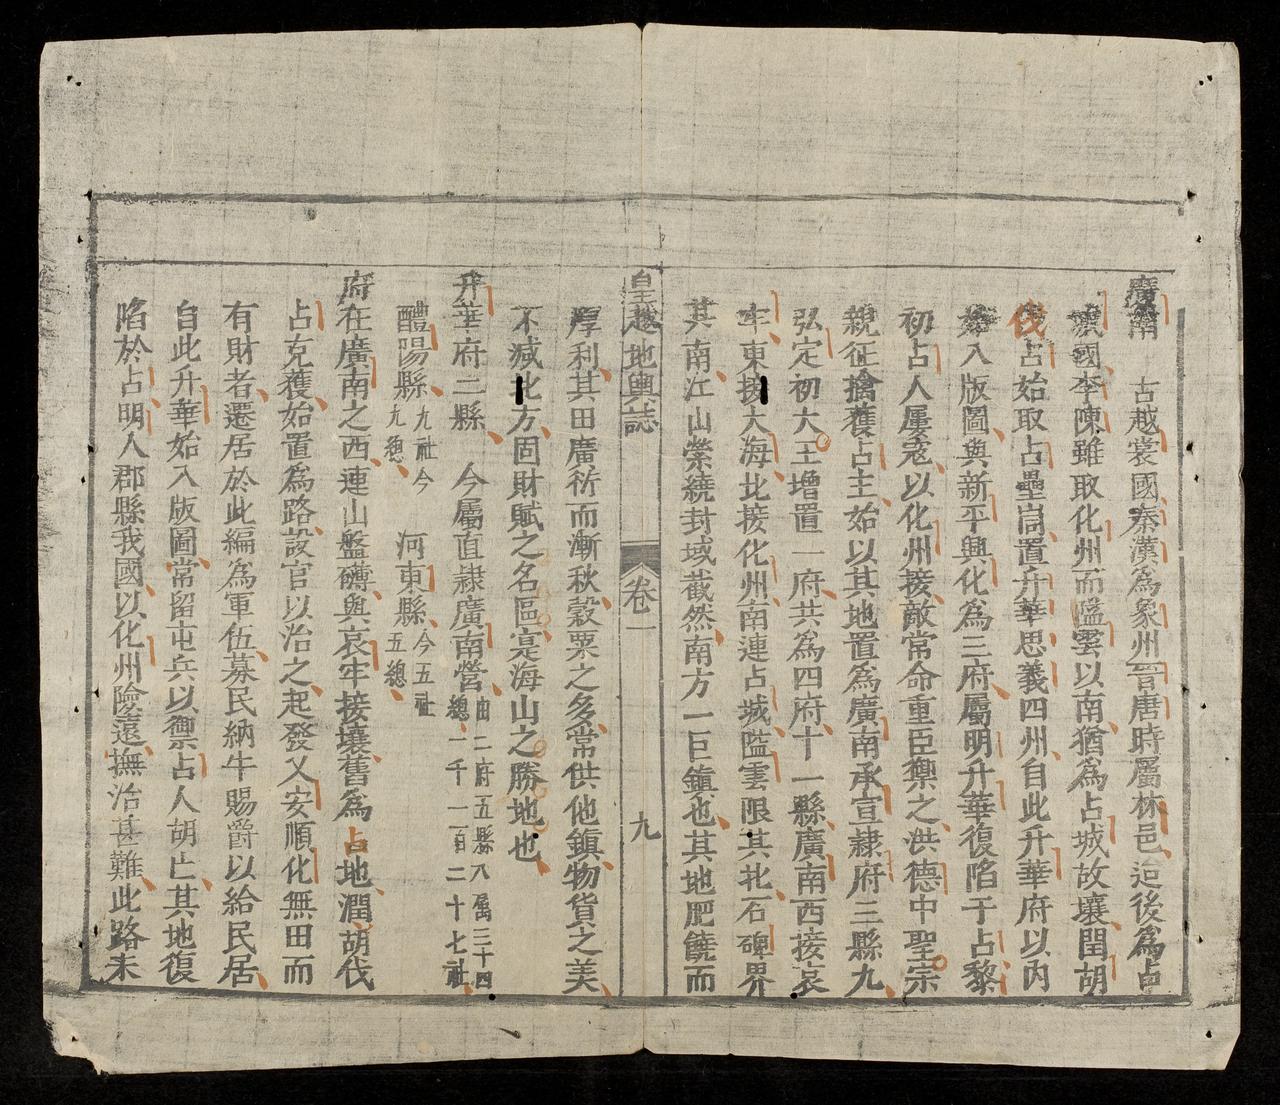 廣南 古越裳國秦漢為象州晉唐時屬林邑迨後為占
城國李陳雖取化州而隘雲以南猶為占城故壤閏胡
伐占始取占壘峝置升華思義四州自此升華府以內
始入版圖與新平興化為三府屬明升華復陷于占黎
初占人屢寇以化州接敵常命重臣禦之洪德中聖宗
親征擒獲占主始以其地置為廣南承宣隷府三縣九
弘定初大王增置一府共為四府十一縣廣南西接哀
牢東接大海北接化州南連占城隘雲限其北石碑界
其南江山縈繞封域截然南方一巨鎮也其地肥饒而
皇越地輿誌 卷一 九
厚利其田廣衍而漸秋穀粟之多常供他鎮物貨之美
不減北方固財賦之名區寔海山之勝地也
升華府二縣 今屬直隷廣南營由二府五縣八屬三十四總一千一百二十七社
醴陽縣九社今九總 河東縣今五社五總
府在廣南之西連山盤礡與哀牢接壤舊為占地潤胡伐
占克獲始置為路設官以治之起發又安順化無田而
有財者遷居於此編為軍伍募民納牛賜爵以給民居
自此升華始入版圖常留屯兵以禦占人胡亡其地復
陷於占明人郡縣我國以化州險遠撫治甚難此路未